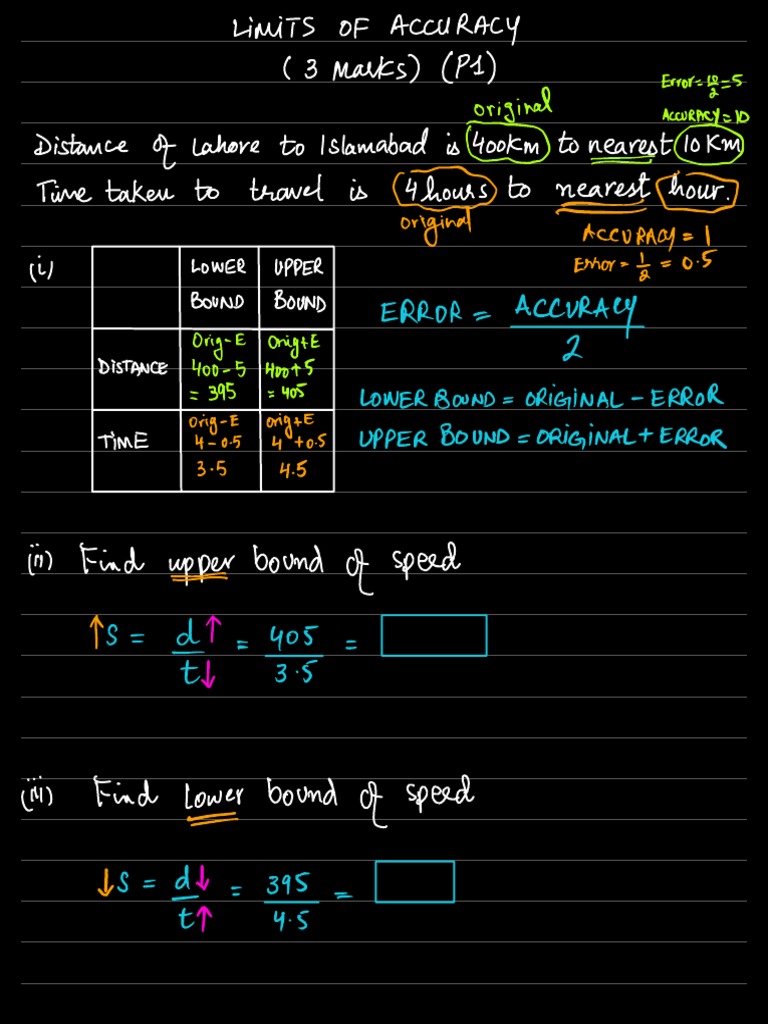 LIMITS OF ACCURACY
(3 Marks) (P1)
Error = 10/2 = 5
original
ACCURACY = 10
Distance of Lahore to Islamabad is 400Km to nearest 10 Km
Time taken to travel is 4 hours to nearest hour.
original
ACCURACY = 1
Error = 1/2 = 0.5
(i)
LOWER BOUND
UPPER BOUND
ERROR = ACCURACY / 2
DISTANCE
Orig - E
400 - 5
= 395
Orig + E
400 + 5
= 405
LOWER BOUND = ORIGINAL - ERROR
UPPER BOUND = ORIGINAL + ERROR
TIME
Orig - E
4 - 0.5
3.5
Orig + E
4 + 0.5
4.5
(ii) Find upper bound of speed
↑S = d↑ / t↓ = 405 / 3.5 =
(iii) Find lower bound of speed
↓S = d↓ / t↑ = 395 / 4.5 =